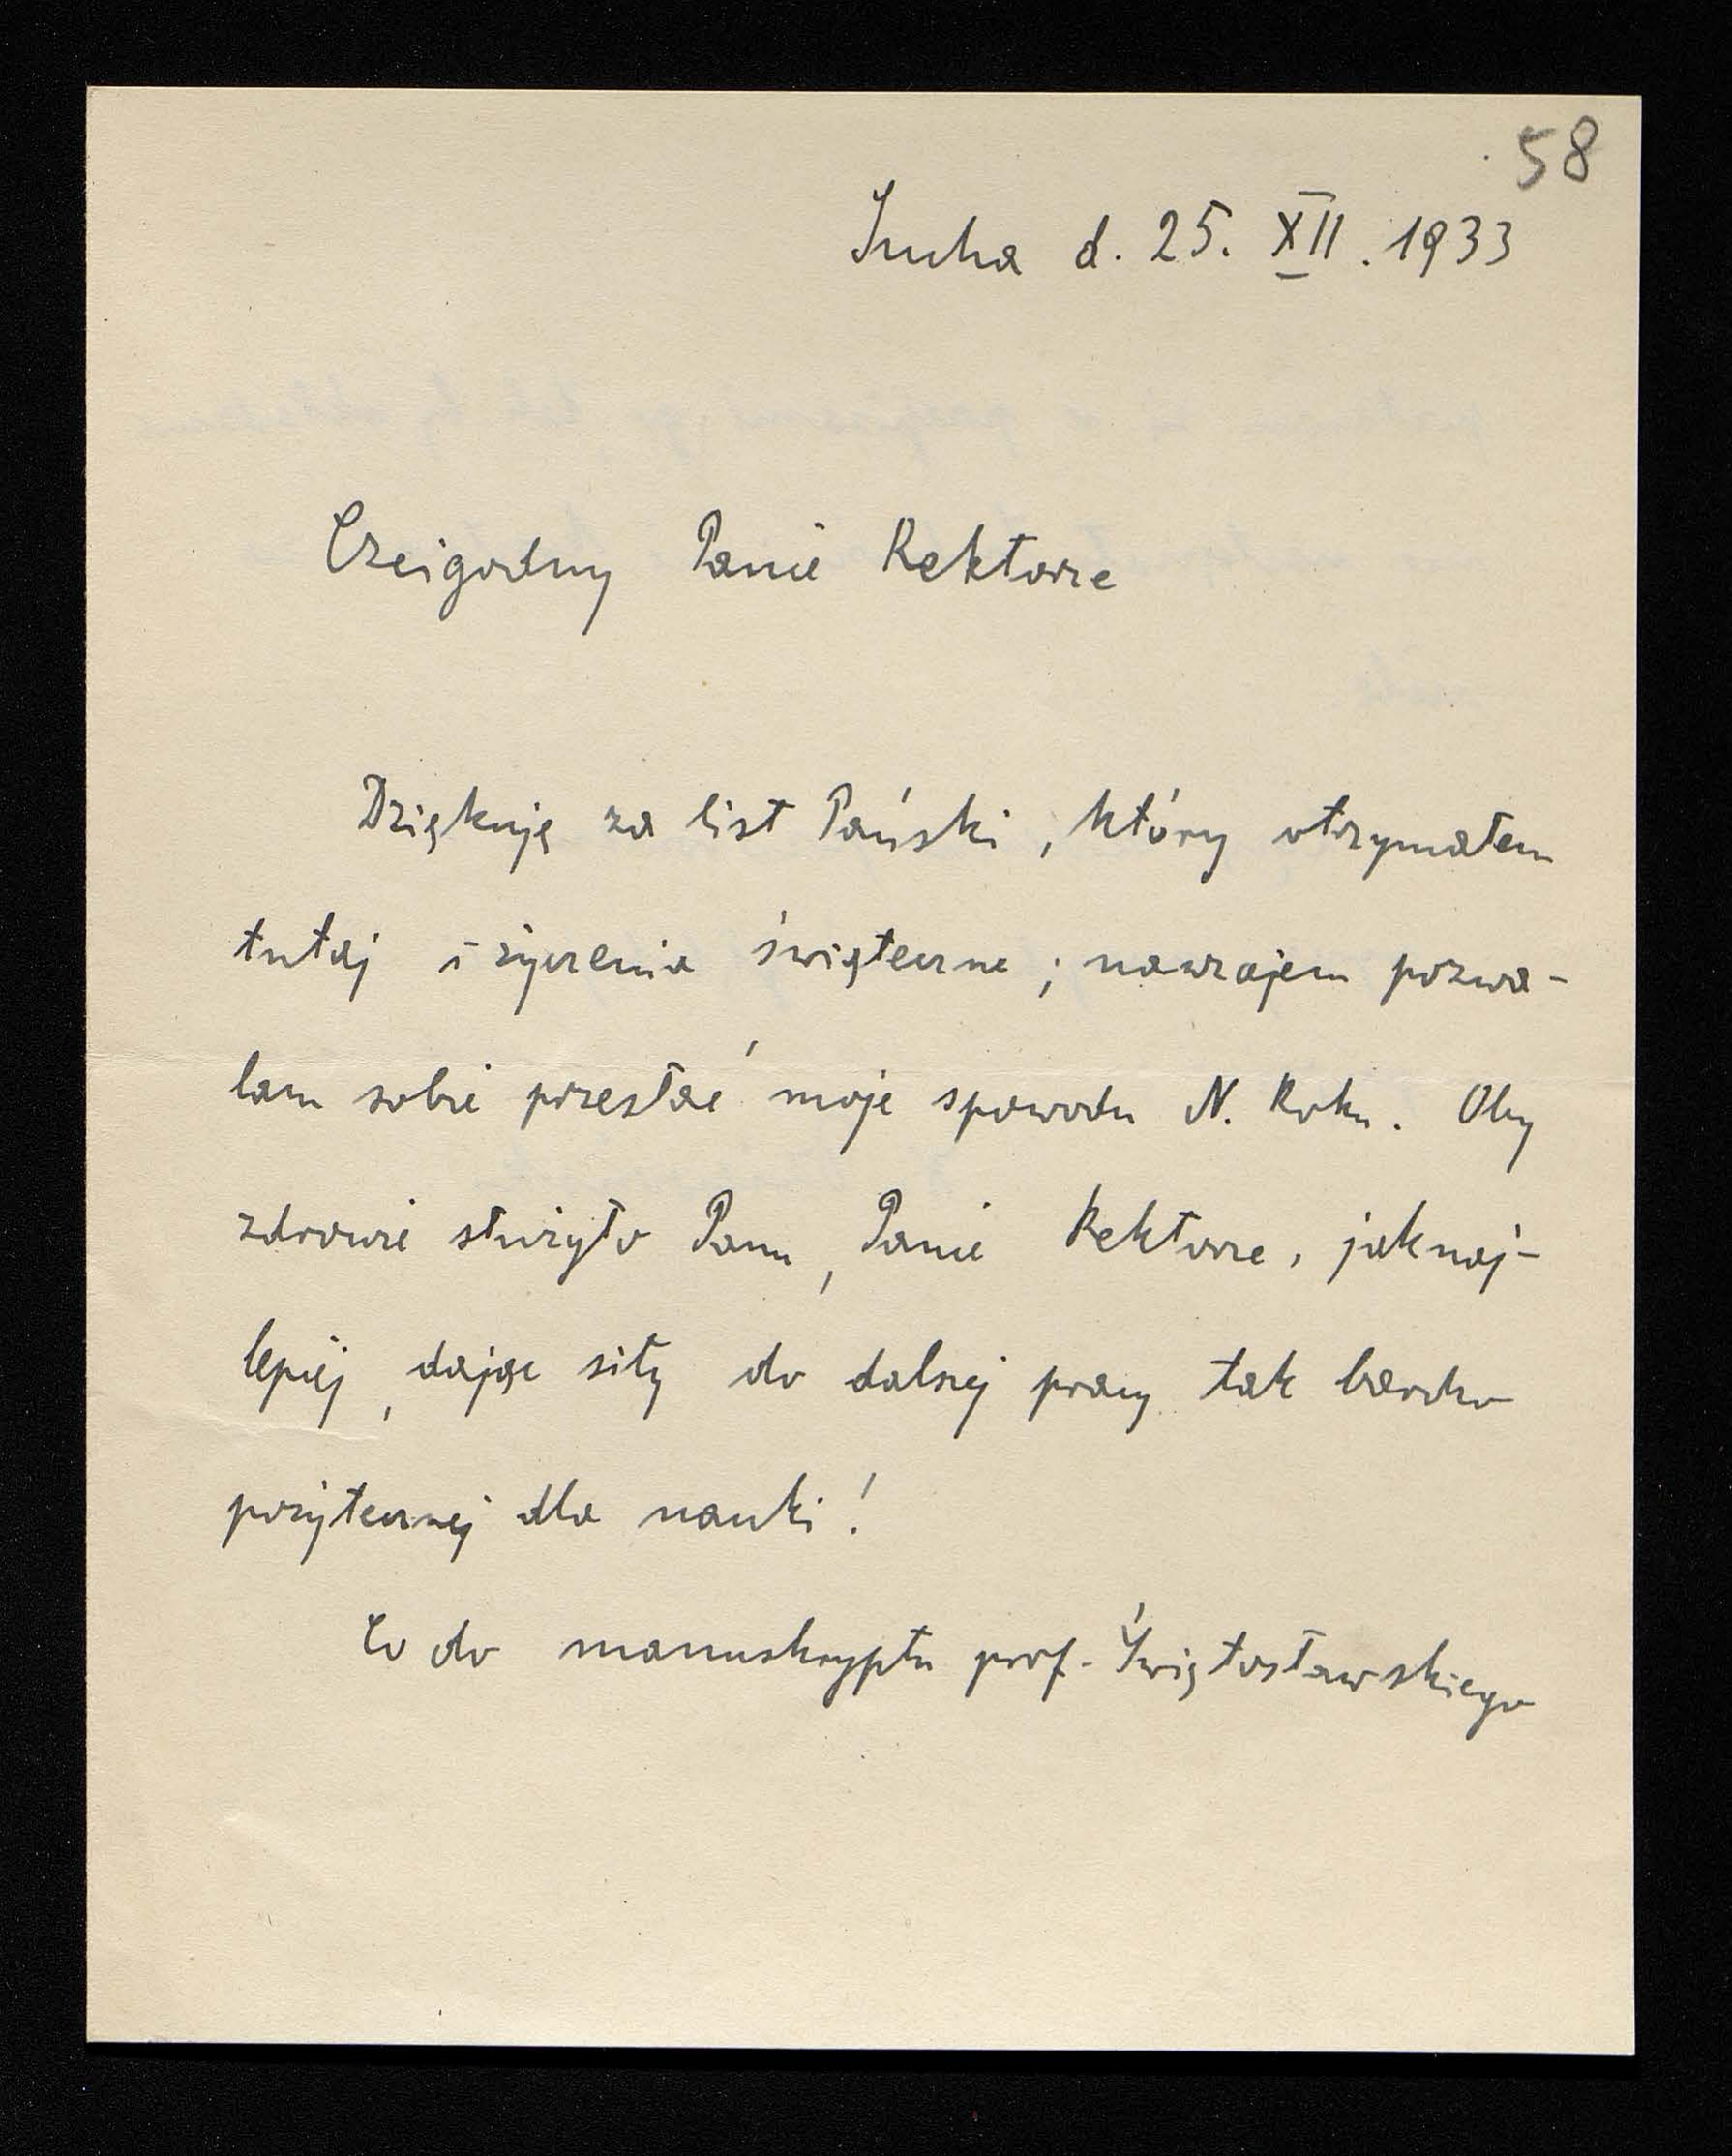 58
Sucha d. 25. XII. 1933
Czcigodny Panie Rektorze
Dziękuję za list Pański, który otrzymałem
tutaj i życzenia świąteczne; nawzajem pozwa-
lam sobie przesłać moje spowodu N. Roku. Oby
zdrowie służyło Panu, Panie Rektorze, jaknaj-
lepiej, dając siły do dalszej pracy tak bardzo
pożytecznej dla nauki!
Co do manuskryptu prof. Świętosławskiego